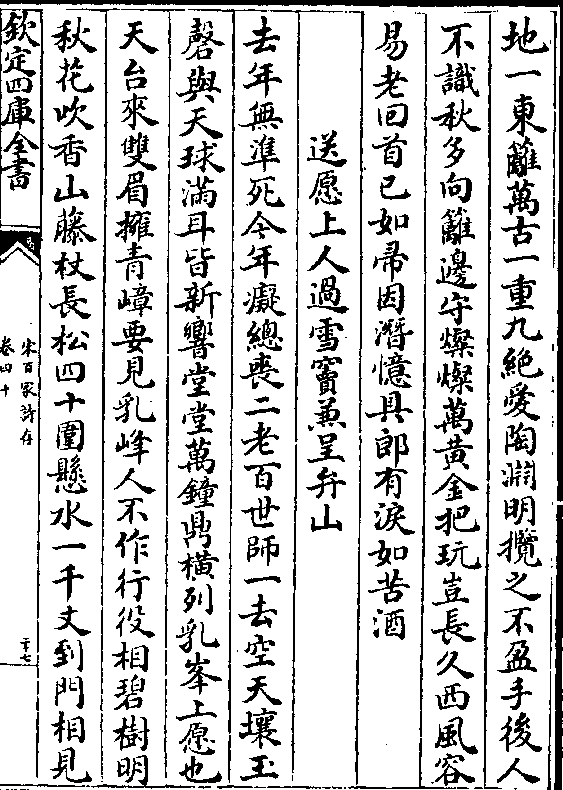 地一東籬萬古一重九絶愛陶淵明攬之不盈手後人
不識秋多向籬邊守燦燦萬黄金把玩豈長久西風容
易老回首已如帚因潛憶具郎有淚如苦酒
送愿上人過雪竇兼呈弁山
去年無準死今年癡總喪二老百世師一去空天壤玉
磬與天球滿耳皆新響堂堂萬鐘鼎横列乳峯上愿也
天台來雙眉擁青嶂要見乳峰人不作行役相碧樹明
秋花吹香山藤杖長松四十圍懸水一千丈到門相見
欽定四庫全書
宋百家詩存
卷四十
二十七